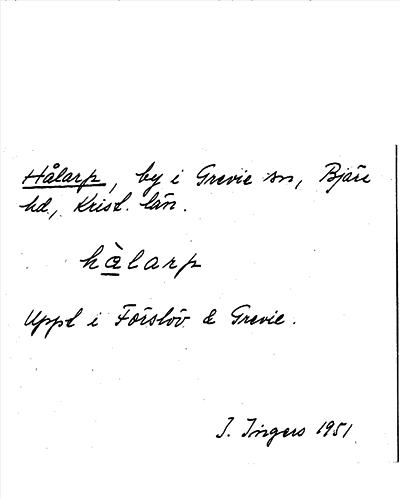 Hålarp, by i Grevie sn, Bjäre
hd, Krist. län.
hàlarp
Uppt i Förslöv & Grevie.
I. Ingers 1951